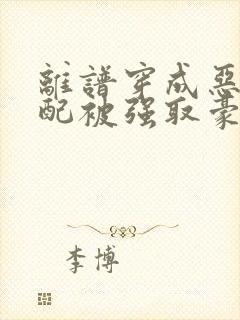 離譜穿成惡
配被强取豪
李博